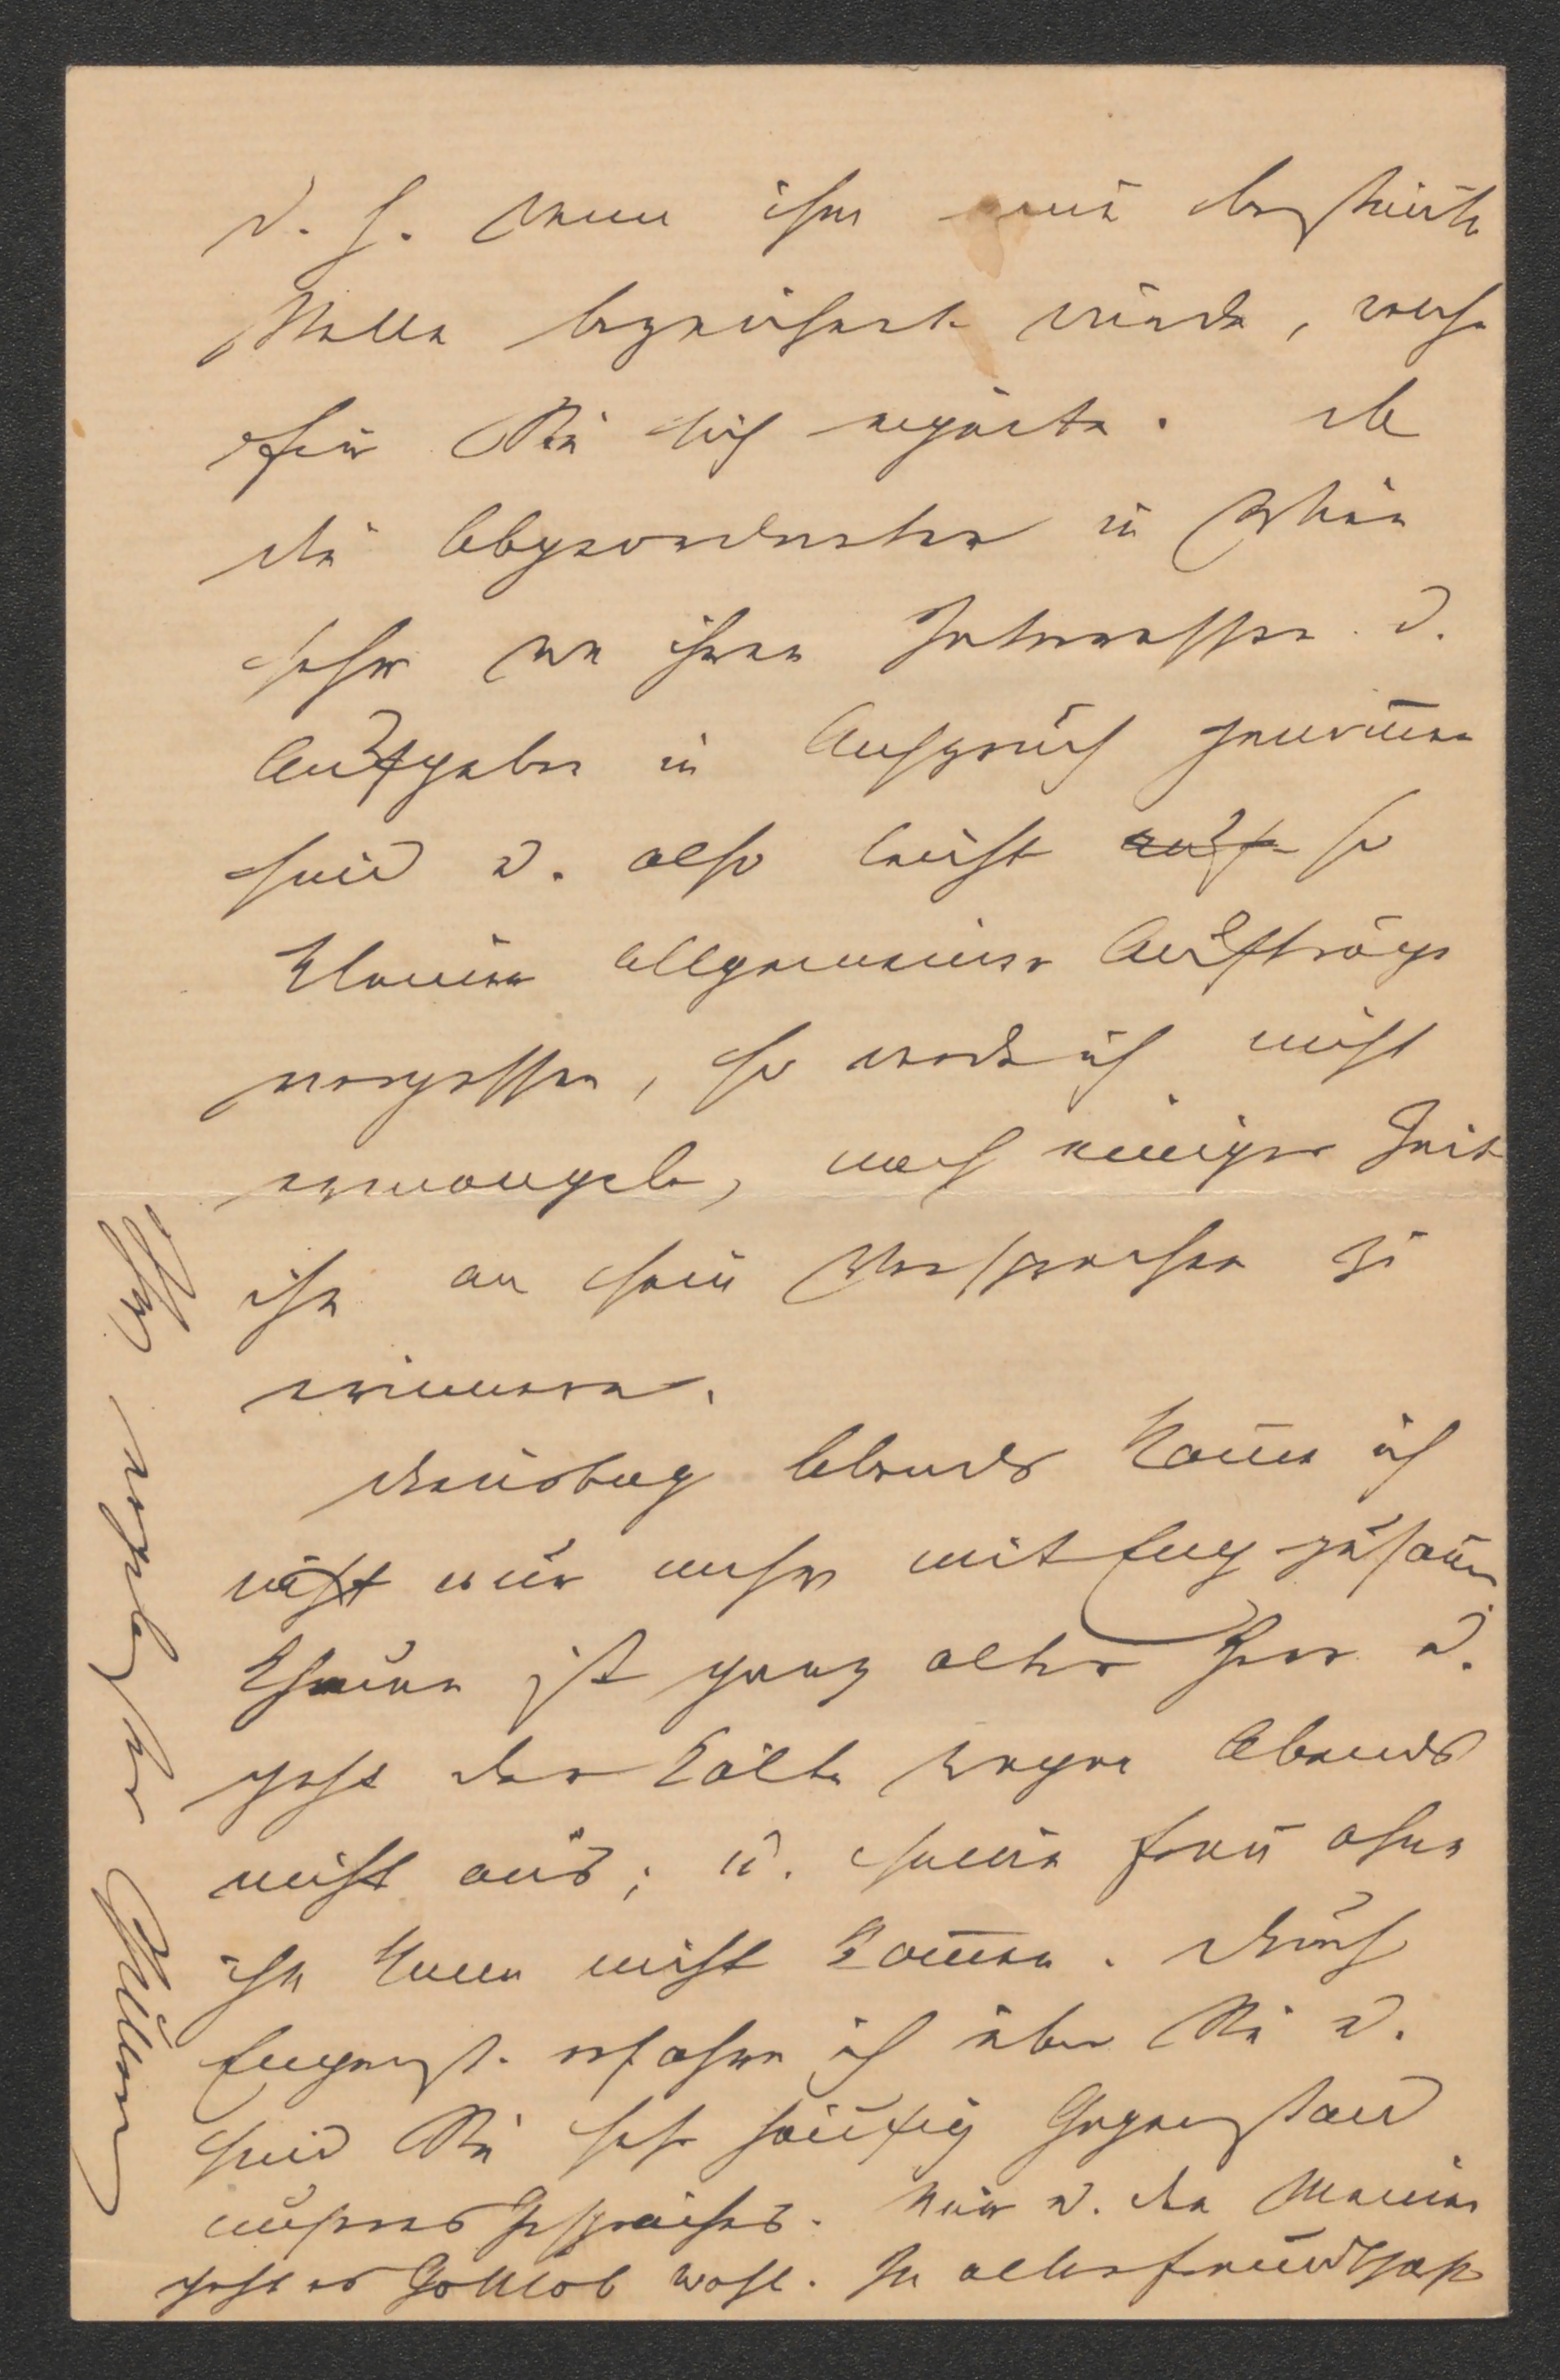 d. h. wenn ihm eine bestimte
Stelle bezeichnet würde, welche
für Sie sich eignete. Da
die Abgeordneten in Wien
sehr von ihren Interessen u.
Aufgaben in Anspruch genomen
sind u. also leicht auf so
kleine allgemeine Aufträge
vergessen, so werde ich nicht
ermangeln, nach einiger Zeit
ihn an sein Versprechen zu
erinnern.
Dienstag Abends kome ich
nicht mehr mit Eug zusamen
ist ganz alter Herr u.
geht der Kälte wegen Abends
nicht aus; u. seine Frau ohne
ihn kann nicht komen. Durch
erfahre ich über Sie u.
sind Sie sehr häufig Gegenstand
unseres Gespräches. Mir u. den Meinen
geht es Gottlob wohl. In alter Freundschaft
Ihr ergebenster